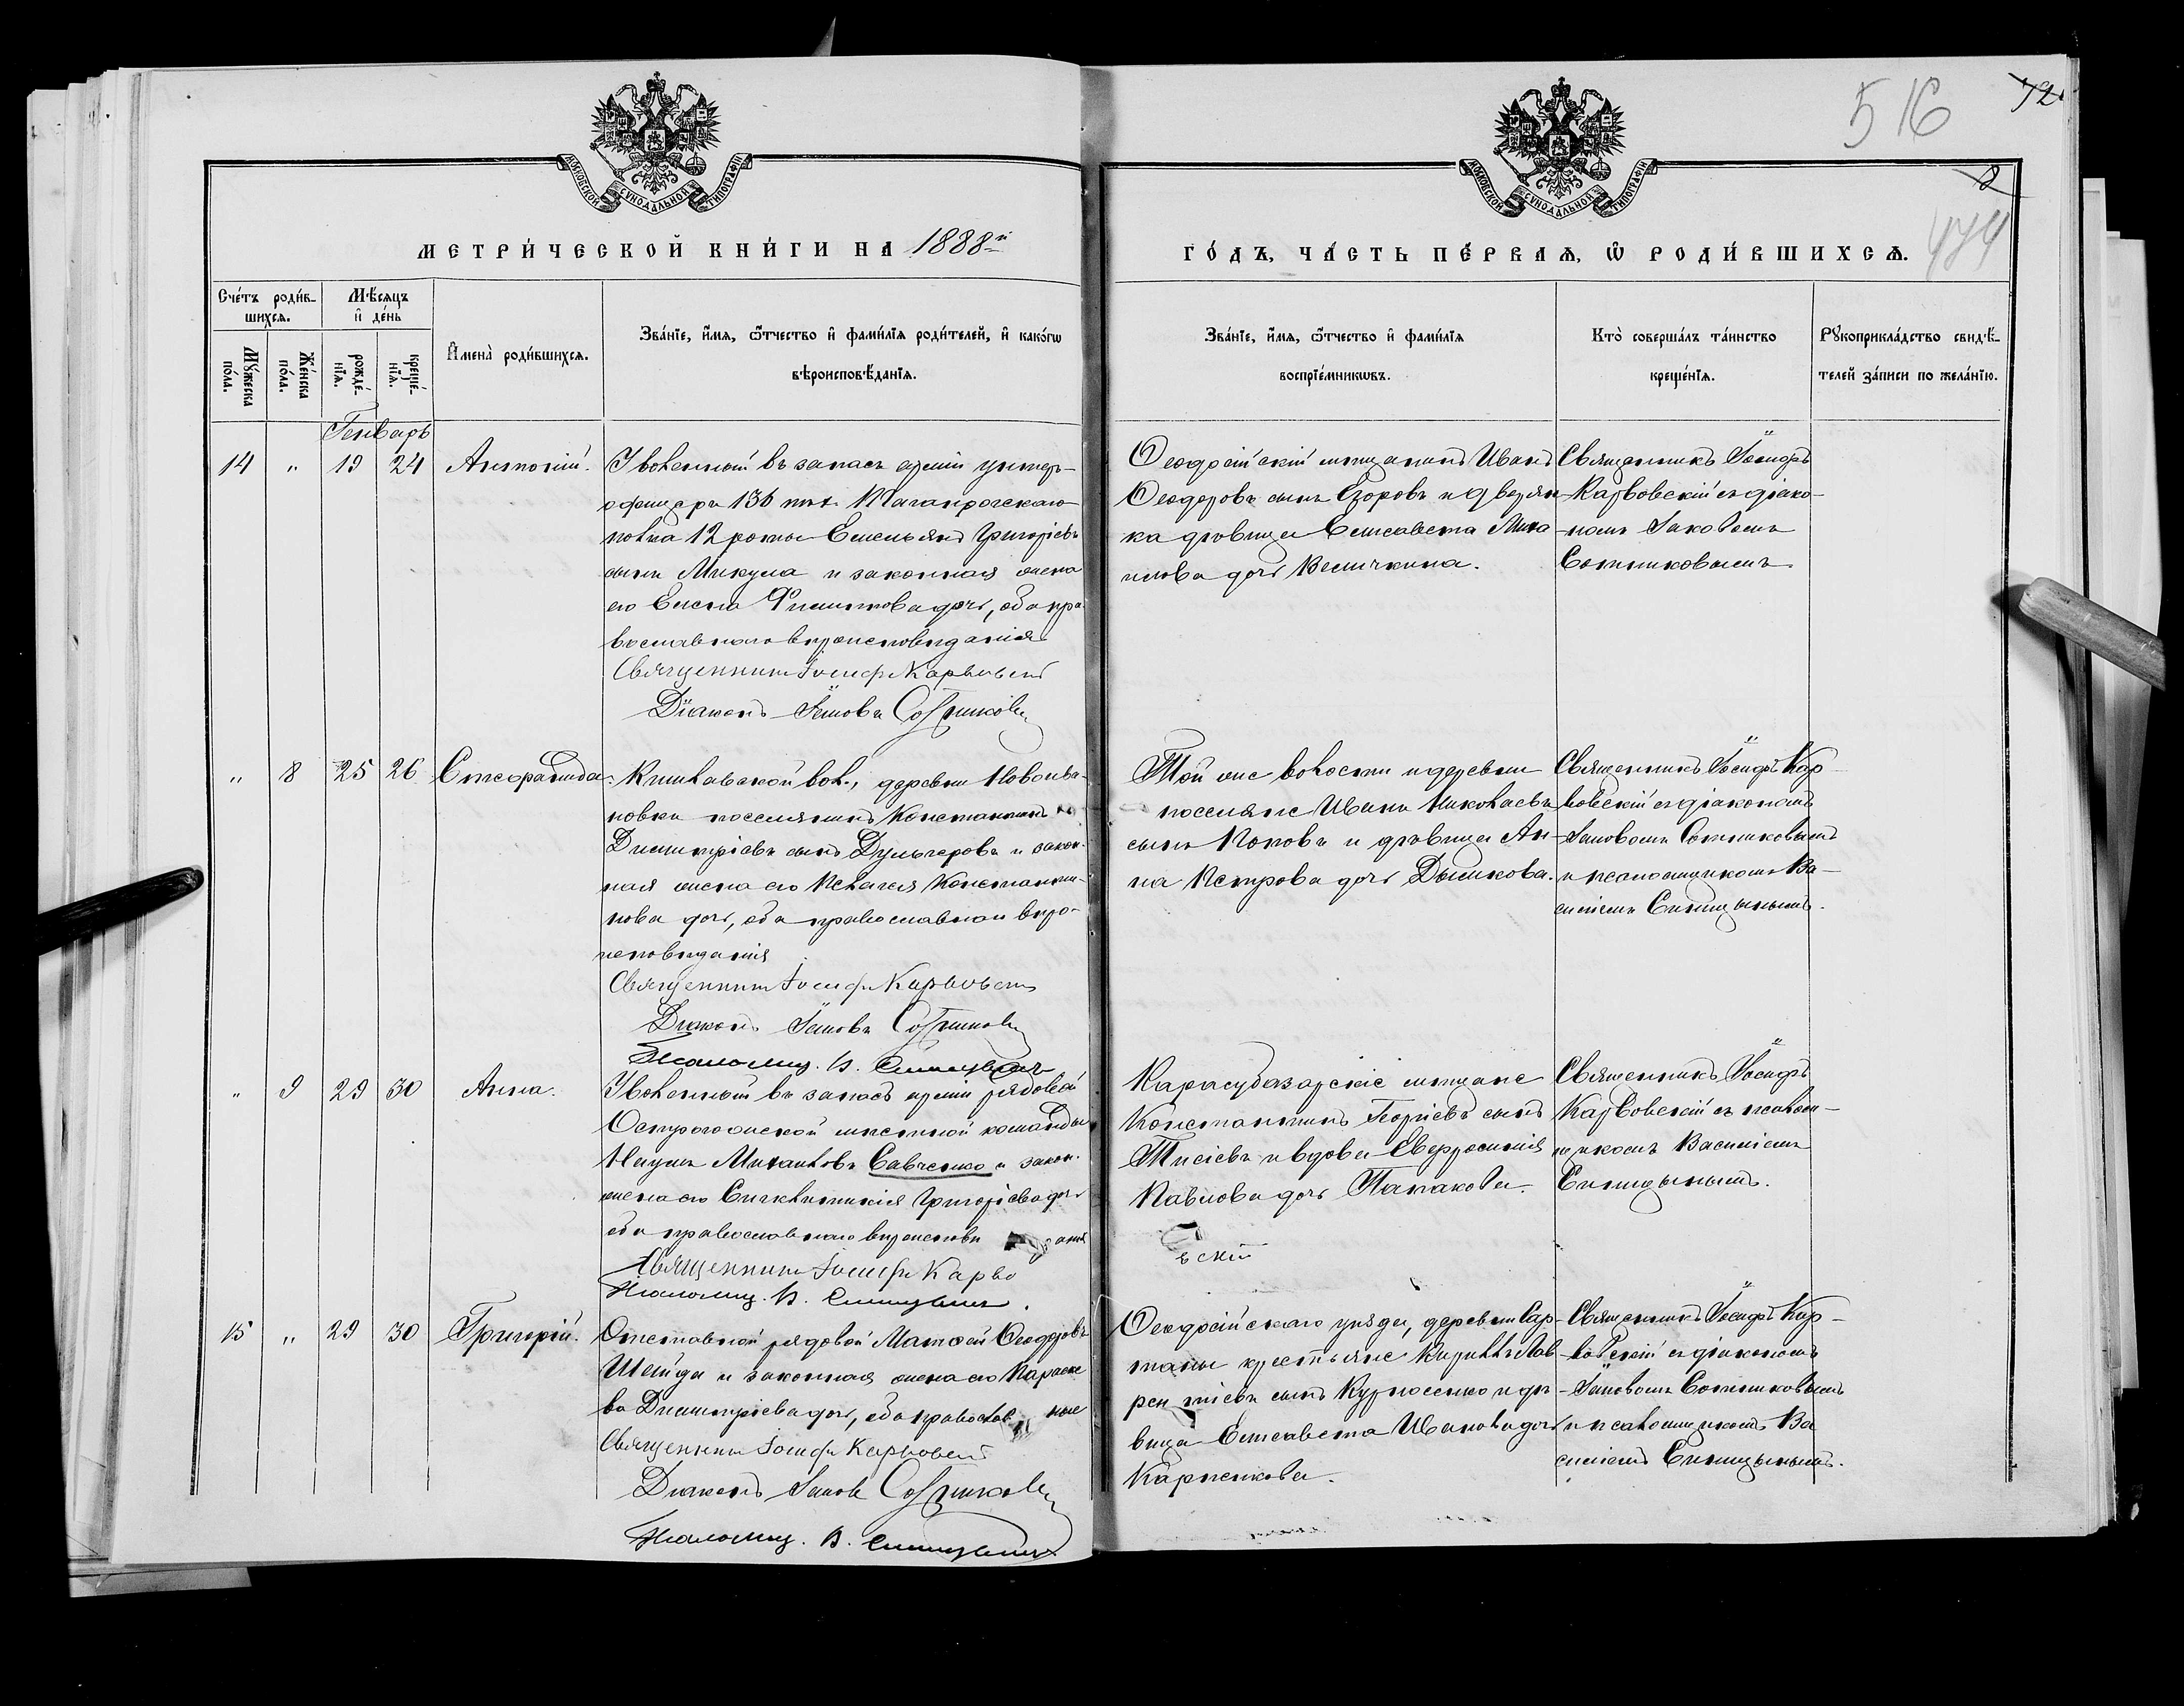 516
72
8
474
МОСКОВСКОЙ СѴНОДАЛЬНОЙ ТИПОГРАФІИ
МОСКОВСКОЙ СѴНОДАЛЬНОЙ ТИПОГРАФІИ
МЕТРИ́ЧЕСКОЙ КНИ́ГИ НА 1888й
ГО́ДЪ, ЧА́СТЬ ПЕ́РВАѦ, Ѡ҆ РОДИ́ВШИХСѦ.
Сче́тъ роди́вшихсѧ.
Мѣ́сѧцъ и҆ де́нь
Мꙋ́жеска по́ла.
Же́нска по́ла.
рожде́нїѧ.
креще́нїѧ.
И҆мена̀ роди́вшихсѧ.
Зва́нїе, и҆́мѧ, ѻ҆́тчество и҆ фами́лїѧ роди́телей, и҆ како́гѡ
вѣроисповѣ́данїѧ.
Зва́нїе, и҆́мѧ, ѻ҆́тчество и҆ фами́лїѧ
воспрїе́мникѡвъ.
Кто̀ соверша́лъ та́инство
креще́нїѧ.
Рꙋкоприкла́дство свидѣ́-
телей за́писи по жела́нїю.
Генварь
14 " 19 24 Антоній.
Уволенный въ запасъ арміи унтеръ-
офицеръ 136 пѣх. Таганрогскаго
полка 12 роты Емельянъ Григорьевъ
сынъ Микула и законная жена
его Елена Филиппова дочь, оба пра
вославнаго вѣроисповѣданія
Священникъ Іосифъ Карвовскій
Діаконъ Іаковъ Сотниковъ
Ѳеодосійскій мѣщанинъ Иванъ
Ѳеодоровъ сынъ Егоровъ и дворян
ка дѣвица Елисавета Миха
илова дочь Величкина.
Священникъ Іосифъ
Карвовскій съ діако-
номъ Іаковомъ
Сотниковымъ.
" 8 25 26 Стефанида.
волости, деревни Новоива-
новки поселянинъ Константинъ
Димитріевъ сынъ Дульгеровъ и закон-
ная жена его Пелагея Константи-
нова дочь, оба православнаго вѣро-
исповѣданія
Священникъ Іосифъ Карвовскій
Діаконъ Іаковъ Сотниковъ
Псаломщ. В. Синицынъ
Той же волости и деревни
поселяне Иванъ Николаевъ
сынъ Поповъ и дѣвица Ан-
на Петрова дочь Дымкова.
Священникъ Іосифъ Кар
вовскій съ діакономъ
Іаковомъ Сотниковымъ
и псаломщикомъ Ва-
силіемъ Синицынымъ.
" 9 29 30 Анна.
Уволенный въ запасъ арміи рядовой
Острогожской мѣстной команды
Наумъ Михаиловъ Савченко и закон.
жена его Григорьева дочь
оба православнаго вѣроисповѣданія
Священникъ Іосифъ Карво
вскій
Псаломщ. В. Синицынъ.
Карасубазарскіе мѣщане
Константинъ Георгіевъ сынъ
и вдова Евфросинія
Павлова дочь
Священникъ Іосифъ
Карвовскій съ псалом-
щикомъ Василіемъ
Синицынымъ.
15 " 29 30 Григорій.
Отставной рядовой Матѳей Ѳеодоровъ
и законная жена его Параске
ва Димитріева дочь, оба православные
Священникъ Іосифъ Карвовскій
Діаконъ Іаковъ Сотниковъ
Псаломщ. В. Синицынъ
Ѳеодосійскаго уѣзда, деревни Сар-
таны крестьяне Кириллъ Лав
рентіевъ сынъ Курносенко и дѣ
вица Елисавета Иванова дочь
Карпенкова.
Священникъ Іосифъ Кар-
вовскій съ діакономъ
Іаковомъ Сотниковымъ
и псаломщикомъ Ва
силіемъ Синицынымъ.